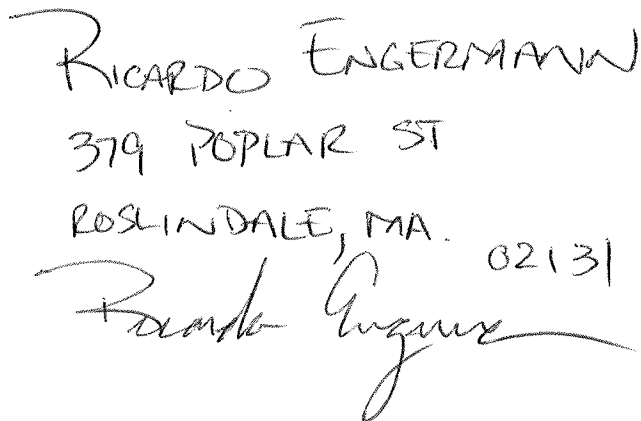 RICARDO ENGERMANN
379 POPLAR ST
ROSLINDALE, MA. 02131
Ricardo